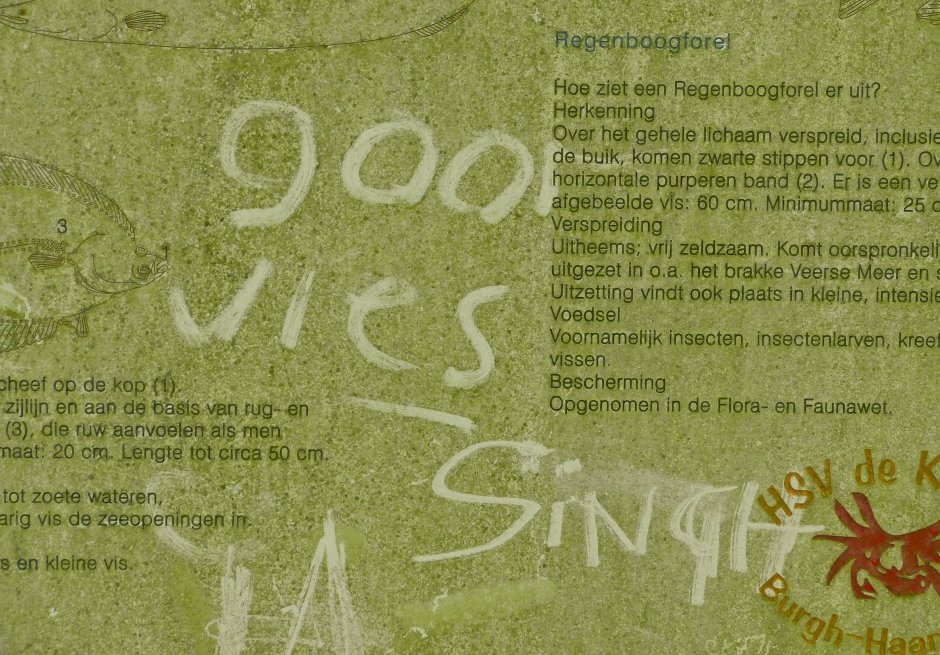 Regenboogforel
Hoe ziet een Regenboogforel er uit?
Herkenning
Over het gehele lichaam verspreid, inclusie
de buik, komen zwarte stippen voor (1). Ov
horizontale purperen band (2). Er is een ve
afgebeelde vis: 60 cm. Minimummaat: 25 c
Verspreiding
Uitheems; vrij zeldzaam. Komt oorspronkelij
uitgezet in o.a. het brakke Veerse Meer en s
Uitzetting vindt ook plaats in kleine, intensie
Voedsel
Voornamelijk insecten, insectenlarven, kreef
vissen.
Bescherming
Opgenomen in de Flora- en Faunawet.
3
1
cheef op de kop (1).
zijlijn en aan de basis van rug- en
(3), die ruw aanvoelen als men
maat: 20 cm. Lengte tot circa 50 cm.
tot zoete wateren,
arig vis de zeeopeningen in.
s en kleine vis.
goor
vies
SiNGH
HSV de K
Burgh-Haam